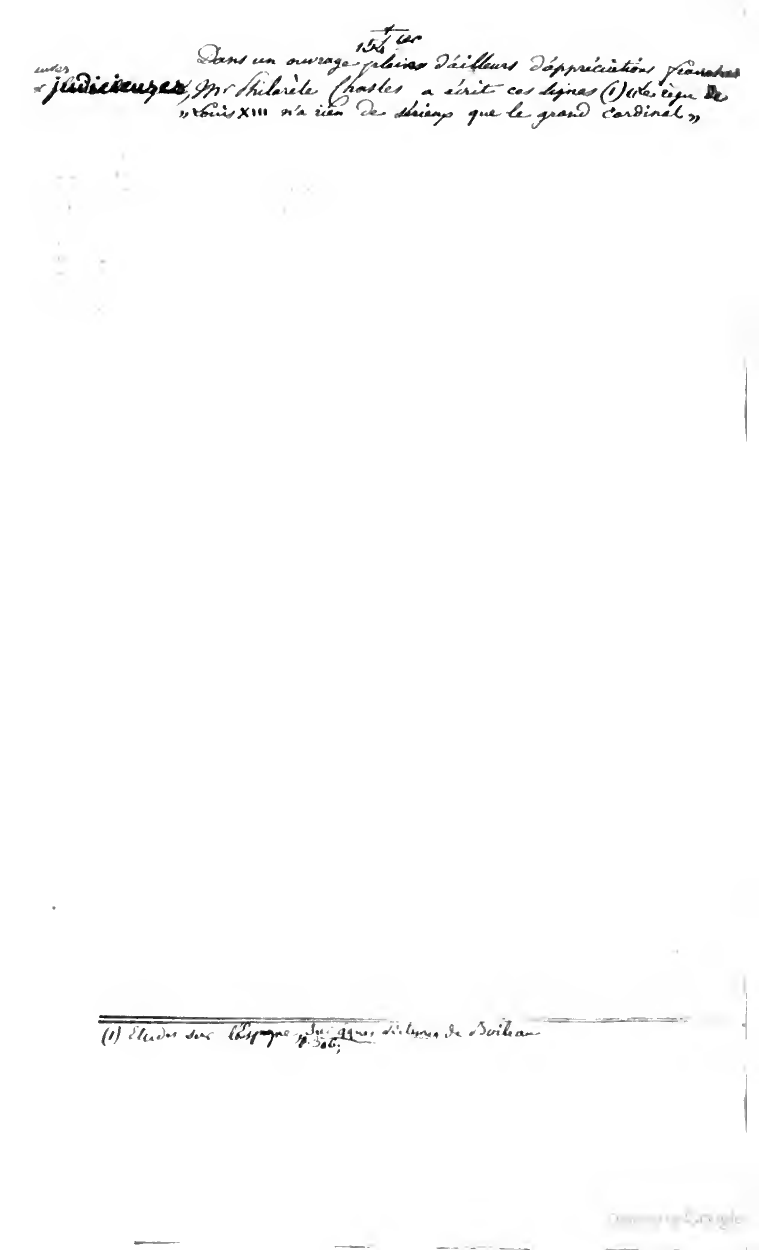 154 ter
Dans un ouvrage pleins d'ailleurs d'appréciations franches
et judicieuses, Mr Philarète Chasles a écrit ces lignes (1) « Le règne de
„ Louis XIII n'a rien de sérieux que le grand cardinal „
(1) Etudes sur l'Espagne, Sur qques victimes de Boileau
p. 306;
Google